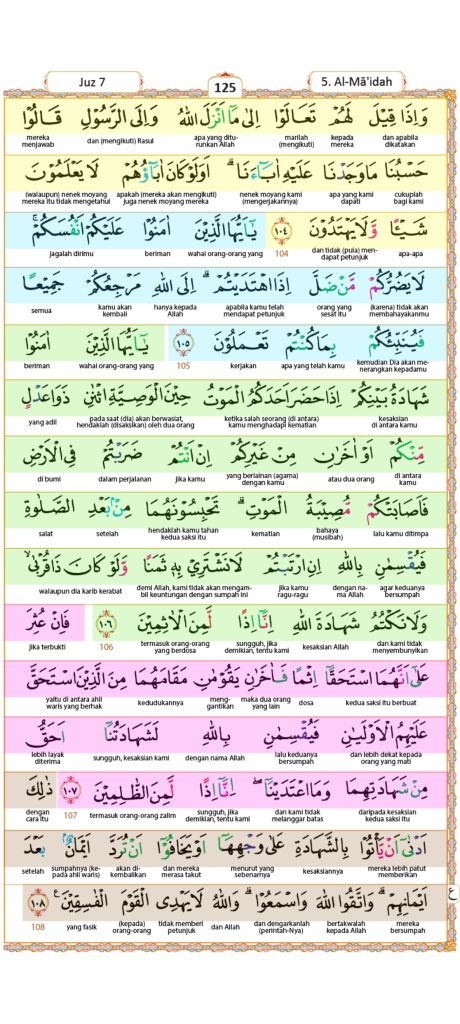 Juz 7
125
5. Al-Mā'idah
وَاِذَا قِيْلَ لَهُمْ تَعَالَوْا اِلٰى مَآ اَنْزَلَ اللّٰهُ وَاِلَى الرَّسُوْلِ قَالُوْا
dan apabila dikatakan kepada mereka marilah (mengikuti) apa yang ditu-runkan Allah dan (mengikuti) Rasul mereka menjawab
حَسْبُنَا مَا وَجَدْنَا عَلَيْهِ اٰبَاۤءَنَا ۗ اَوَلَوْ كَانَ اٰبَاۤؤُهُمْ لَا يَعْلَمُوْنَ
cukuplah bagi kami apa yang kami dapati nenek moyang kami (mengerjakannya) apakah (mereka akan mengikuti) juga nenek moyang mereka (walaupun) nenek moyang mereka itu tidak mengetahui
شَيْـًٔا وَّلَا يَهْتَدُوْنَ ۝١٠٤ يٰٓاَيُّهَا الَّذِيْنَ اٰمَنُوْا عَلَيْكُمْ اَنْفُسَكُمْ ۚ
apa-apa dan tidak (pula) men-dapat petunjuk 104 wahai orang-orang yang beriman jagalah dirimu
لَا يَضُرُّكُمْ مَّنْ ضَلَّ اِذَا اهْتَدَيْتُمْ ۗ اِلَى اللّٰهِ مَرْجِعُكُمْ جَمِيْعًا
(karena) tidak akan membahayakanmu orang yang sesat itu apabila kamu telah mendapat petunjuk hanya kepada Allah kamu akan kembali semua
فَيُنَبِّئُكُمْ بِمَا كُنْتُمْ تَعْمَلُوْنَ ۝١٠٥ يٰٓاَيُّهَا الَّذِيْنَ اٰمَنُوْا
kemudian Dia akan me-nerangkan kepadamu apa yang telah kamu kerjakan 105 wahai orang-orang yang beriman
شَهَادَةُ بَيْنِكُمْ اِذَا حَضَرَ اَحَدَكُمُ الْمَوْتُ حِيْنَ الْوَصِيَّةِ اثْنٰنِ ذَوَا عَدْلٍ
kesaksian di antara kamu ketika salah seorang (di antara) kamu menghadapi kematian pada saat (dia) akan berwasiat, hendaklah (disaksikan) oleh dua orang yang adil
مِّنْكُمْ اَوْ اٰخَرٰنِ مِنْ غَيْرِكُمْ اِنْ اَنْتُمْ ضَرَبْتُمْ فِى الْاَرْضِ
di antara kamu atau dua orang yang berlainan (agama) dengan kamu jika kamu dalam perjalanan di bumi
فَاَصَابَتْكُمْ مُّصِيْبَةُ الْمَوْتِ ۗ تَحْبِسُوْنَهُمَا مِنْۢ بَعْدِ الصَّلٰوةِ
lalu kamu ditimpa bahaya (musibah) kematian hendaklah kamu tahan kedua saksi itu setelah salat
فَيُقْسِمٰنِ بِاللّٰهِ اِنِ ارْتَبْتُمْ لَا نَشْتَرِيْ بِهٖ ثَمَنًا وَّلَوْ كَانَ ذَا قُرْبٰى ۙ
agar keduanya bersumpah dengan na-ma Allah jika kamu ragu-ragu demi Allah, kami tidak akan mengam-bil keuntungan dengan sumpah ini walaupun dia karib kerabat
وَلَا نَكْتُمُ شَهَادَةَ اللّٰهِ اِنَّآ اِذًا لَّمِنَ الْاٰثِمِيْنَ ۝١٠٦ فَاِنْ عُثِرَ
dan kami tidak menyembunyikan kesaksian Allah sungguh, jika demikian, tentu kami termasuk orang-orang yang berdosa 106 jika terbukti
عَلٰٓى اَنَّهُمَا اسْتَحَقَّآ اِثْمًا فَاٰخَرٰنِ يَقُوْمٰنِ مَقَامَهُمَا مِنَ الَّذِيْنَ اسْتَحَقَّ
kedua saksi itu berbuat dosa maka dua orang yang lain meng-gantikan kedudukannya yaitu di antara ahli waris yang berhak
عَلَيْهِمُ الْاَوْلَيٰنِ فَيُقْسِمٰنِ بِاللّٰهِ لَشَهَادَتُنَآ اَحَقُّ
dan lebih dekat kepada orang yang mati lalu keduanya bersumpah dengan nama Allah sungguh, kesaksian kami lebih layak diterima
مِنْ شَهَادَتِهِمَا وَمَا اعْتَدَيْنَآ ۖ اِنَّآ اِذًا لَّمِنَ الظّٰلِمِيْنَ ۝١٠٧ ذٰلِكَ
daripada kesaksian kedua saksi itu dan kami tidak melanggar batas sungguh, jika demikian, tentu kami termasuk orang-orang zalim 107 dengan cara itu
اَدْنٰٓى اَنْ يَّأْتُوْا بِالشَّهَادَةِ عَلٰى وَجْهِهَآ اَوْ يَخَافُوْٓا اَنْ تُرَدَّ اَيْمَانٌۢ بَعْدَ
mereka lebih patut memberikan kesaksiannya menurut yang sebenarnya dan mereka merasa takut akan di-kembalikan sumpahnya (ke-pada ahli waris) setelah
اَيْمَانِهِمْ ۗ وَاتَّقُوا اللّٰهَ وَاسْمَعُوْا ۗ وَاللّٰهُ لَا يَهْدِى الْقَوْمَ الْفٰسِقِيْنَ ۝١٠٨ ع
mereka bersumpah bertakwalah kepada Allah dan dengarkanlah (perintah-Nya) dan Allah tidak memberi petunjuk (kepada) orang-orang yang fasik 108